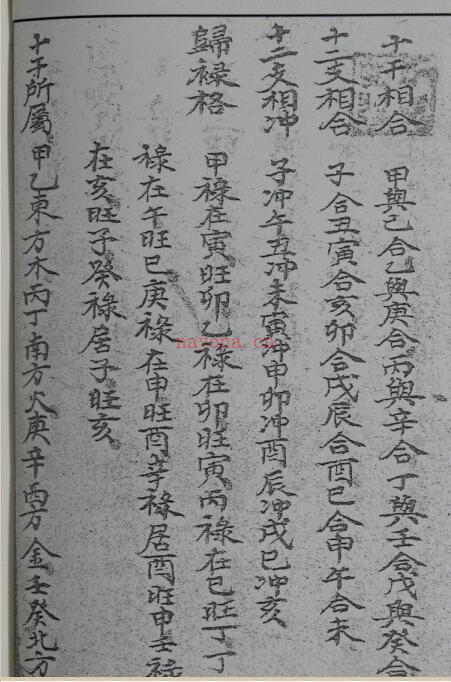 十干相合 甲與己合乙與庚合丙與辛合丁與壬合戊與癸合
十二支相合 子合丑寅合亥卯合戌辰合酉巳合申午合未
十二支相冲 子冲午丑冲未寅冲申卯冲酉辰冲戌巳冲亥
歸禄格 甲禄在寅旺卯乙禄在卯旺寅丙禄在巳旺丁丁
禄在午旺巳庚禄在申旺酉辛禄居酉旺申壬禄
在亥旺子癸禄居子旺亥
十干所屬 甲乙東方木丙丁南方火庚辛西方金壬癸北方
nayona.cn